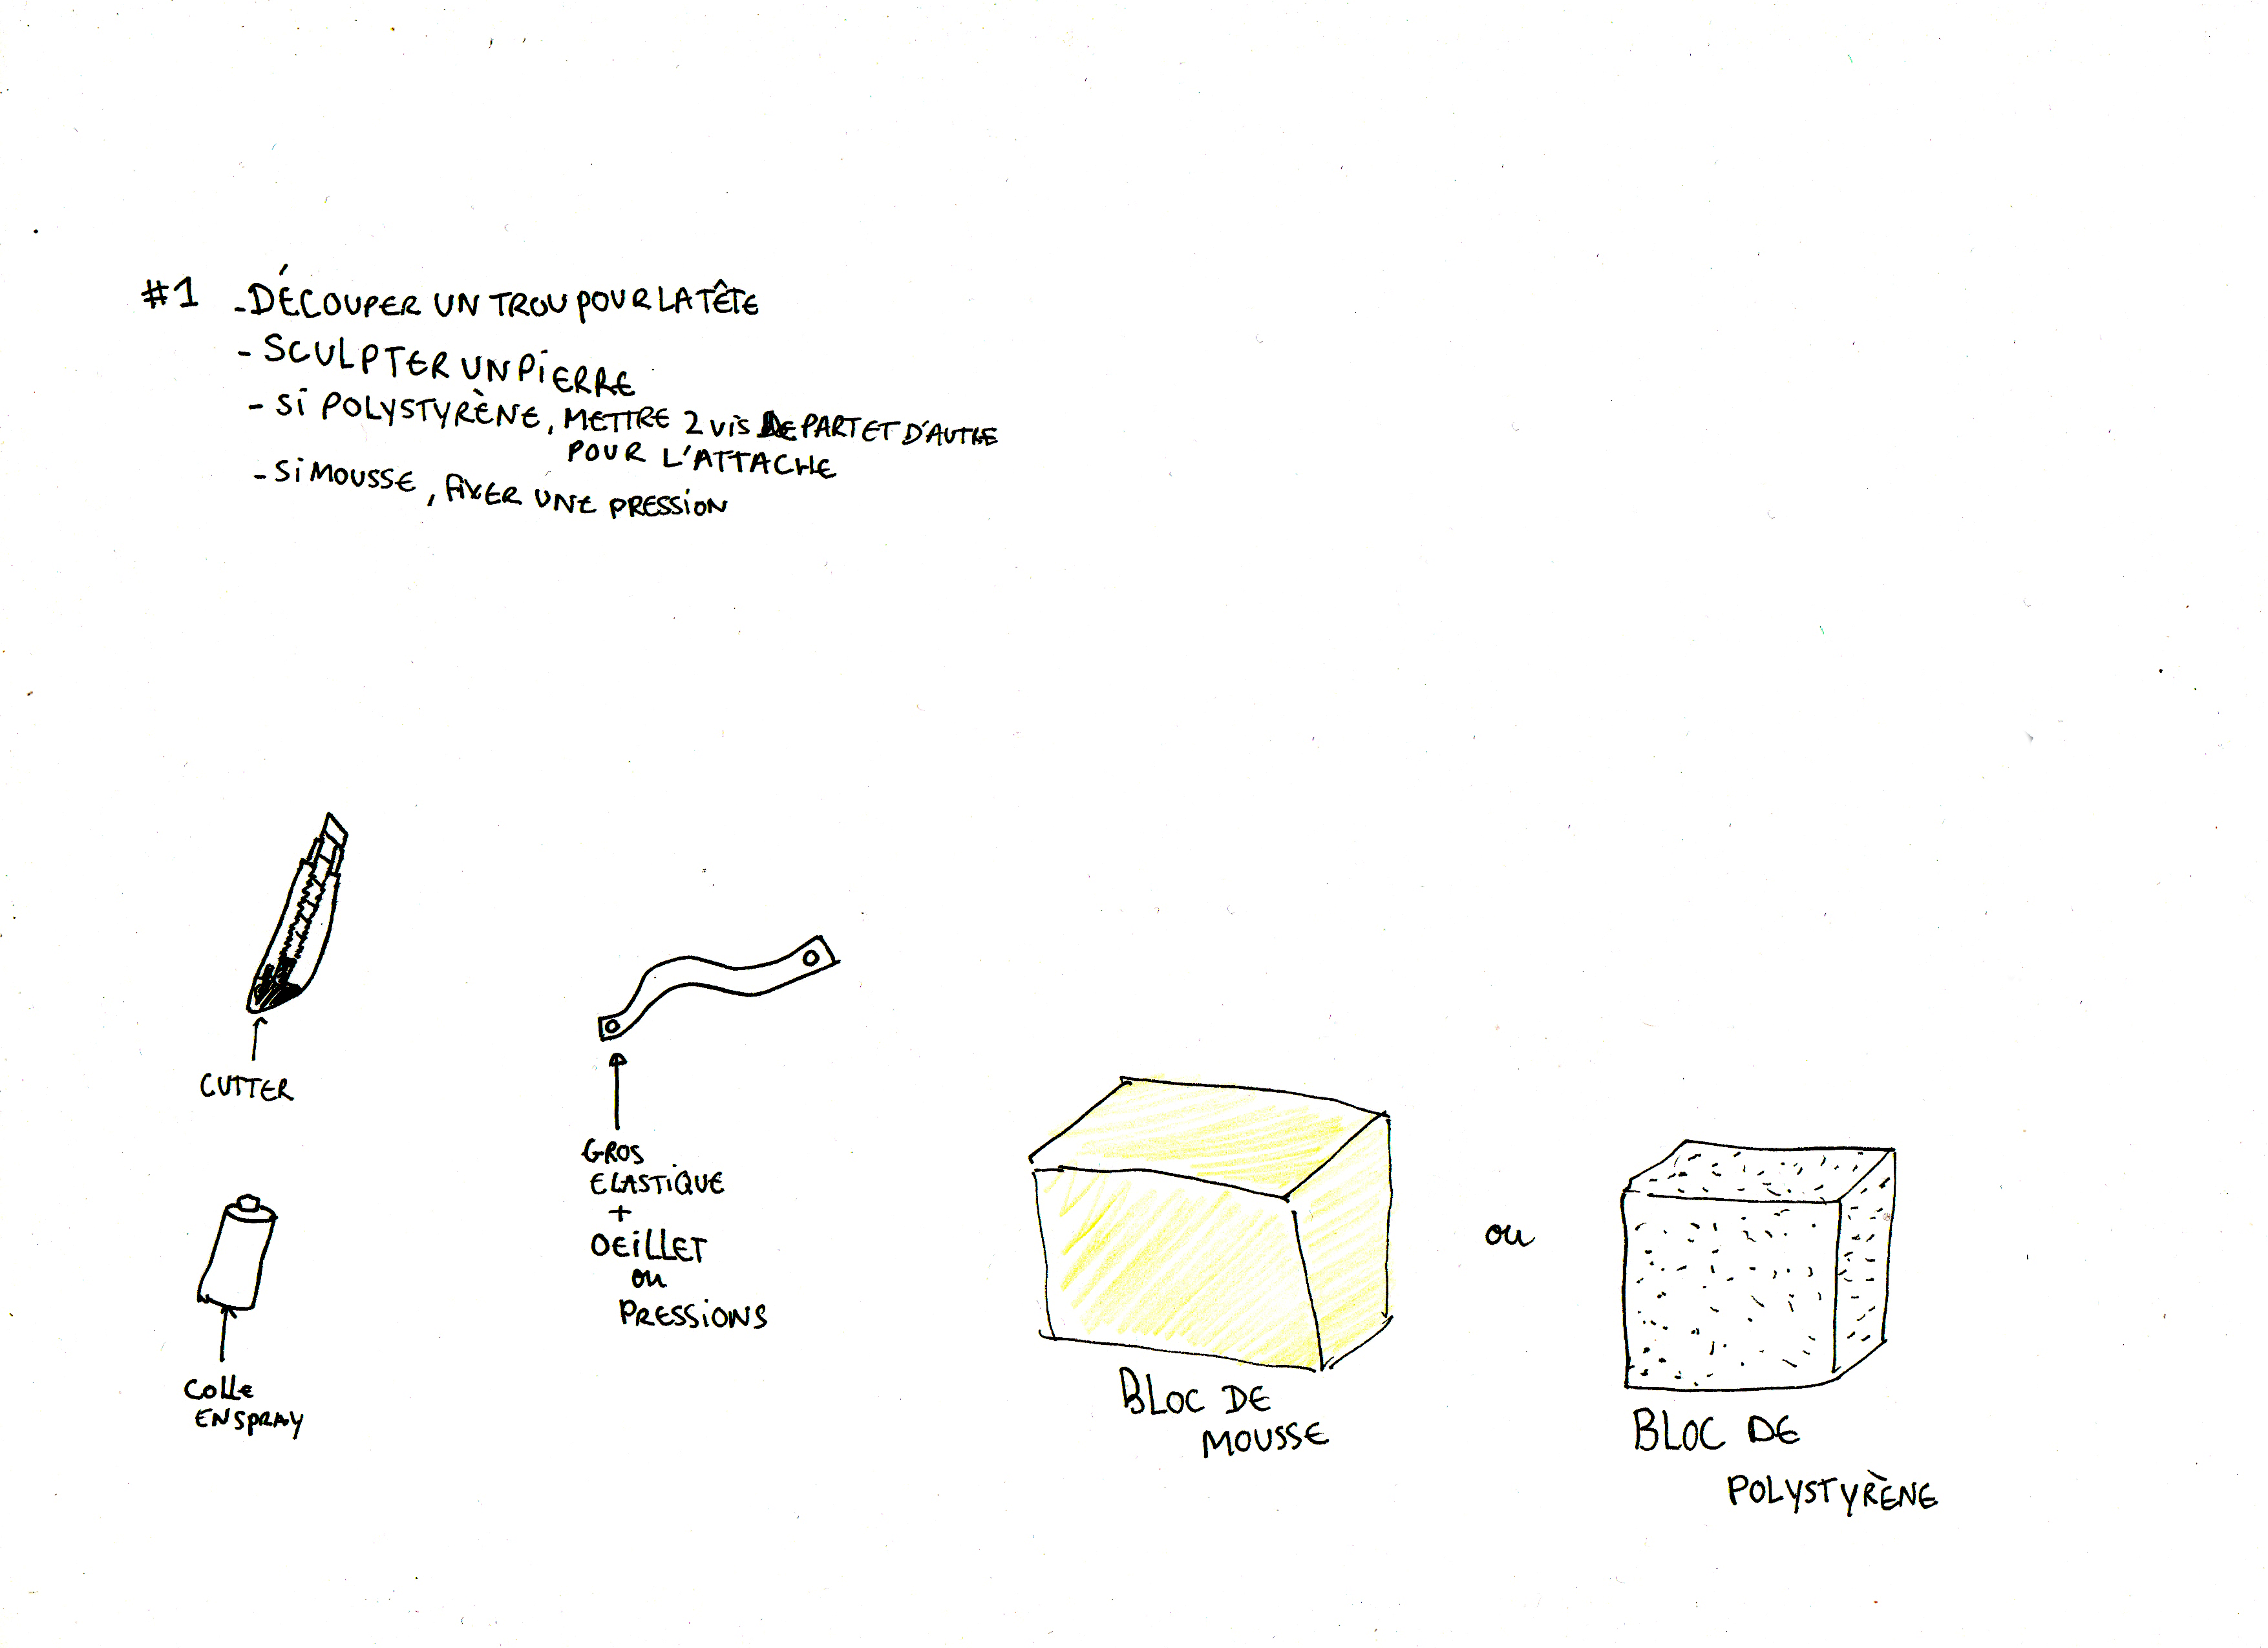 #1 - DÉCOUPER UN TROU POUR LA TÊTE
- SCULPTER UN PIERRE
- Si POLYSTYRÈNE, METTRE 2 vis DE PART ET D'AUTRE
POUR L'ATTACHE
- Si MOUSSE, FIXER UNE PRESSION
CUTTER
COLLE
EN SPRAY
GROS
ELASTIQUE
+
OEILLET
ou
PRESSIONS
BLOC DE
MOUSSE
ou
BLOC DE
POLYSTYRÈNE